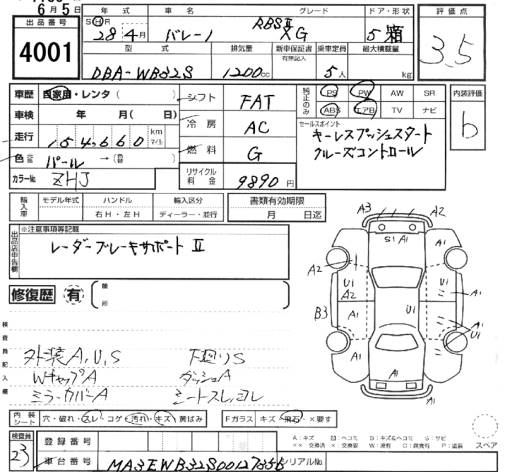 6月5日
出品番号 4001
年式 車名 グレード ドア・形状 評価点
28年4月 バレーノ RBSⅡ XG 5 3.5
型式 排気量 新車保証書 乗車定員 最大積載量
有無記入
DBA-WB32S 1200cc 5人 kg
車歴 自家用・レンタ( ) シフト FAT
純正のみ PS PW AW SR 内装評価
ABS エアB TV ナビ b
車検 年 月( ) 冷房 AC
セールスポイント
キーレスプッシュスタート
クルーズコントロール
走行 154,660 km 燃料 G
色 パール →
カラーNo. ZHJ リサイクル料金 9890円
輸入車 モデル年式 ハンドル 輸入区分 書類有効期限
右H・左H ディーラー・並行 月 日迄
出品店申告欄 ※注意事項等記載
レーダーブレーキサポートⅡ
修復歴 有
検査員記入欄
外装A,U,S 下廻りS
WキャップA ダッシュA
ミラーカバーA シートスレ,コレ
A3 A2
S1 A1 A1
A2 U1 A1
U1 A2 A1 U1
B3 A1 A1 U1 A1
A1
内装シート 穴・破れ・スレ・コゲ・汚れ・キズ・黄ばみ Fガラス キズ・飛石・×要す
A:キズ
スペア
検査員 23 登録番号
車台番号 シリアルNo.